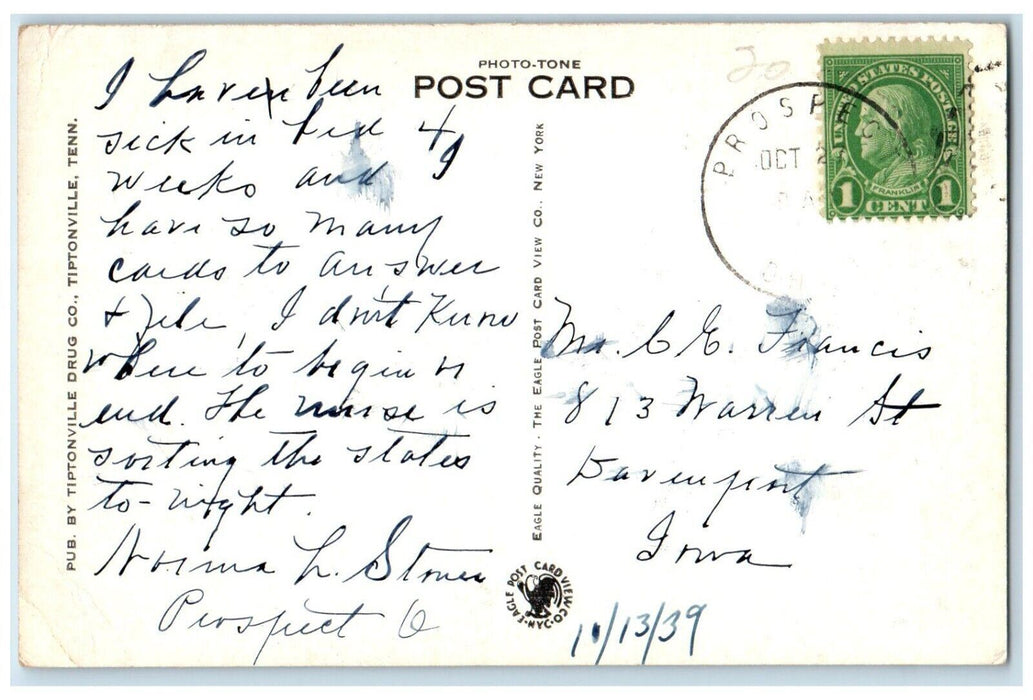 PHOTO-TONE
POST CARD
I have been
sick in bed 4
weeks and
have so many
cards to answer
& file, I don't know
where to begin or
end. The nurse is
sorting the states
to-night.
Norma L.
Prospect O
PUB. BY TIPTONVILLE DRUG CO., TIPTONVILLE, TENN.
EAGLE QUALITY - THE EAGLE POST CARD VIEW CO., NEW YORK
EAGLE POST CARD VIEW CO. N.Y.C.
20
PROSPEC
OCT 2
UNITED STATES POSTAGE
FRANKLIN
1 CENT 1
Mr. C E. Francis
813 Warren St
Davenport
Iowa
11/13/39